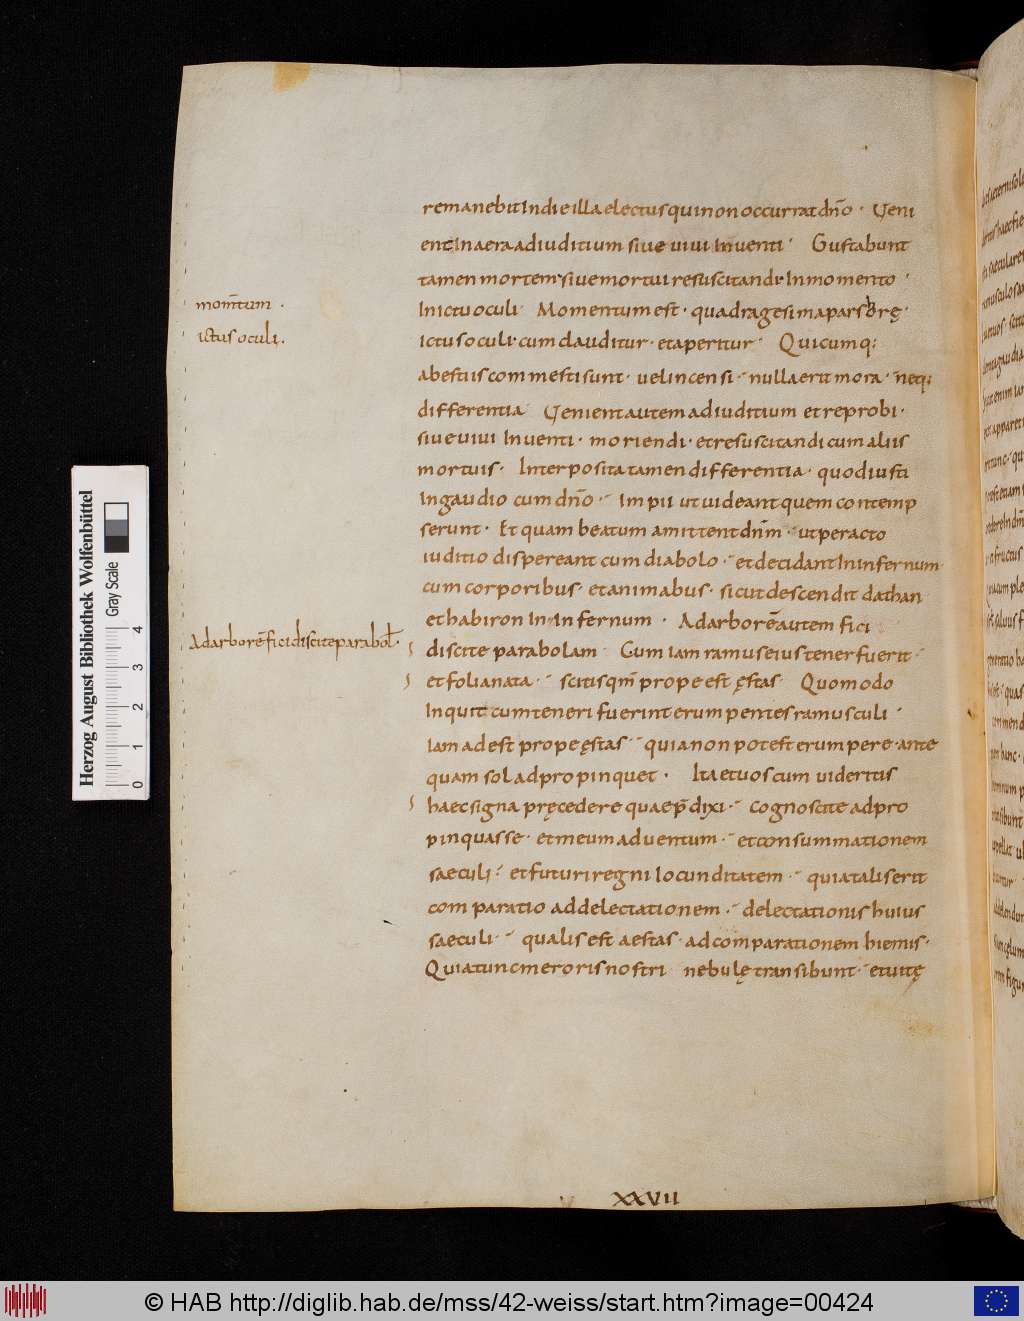 remanebit In die illa electus qui non occurrat dño · Veni
ent In aera ad iuditium siue uiui Inuenti · Gustabunt
tamen mortem siue mortui resuscitandi In momento ·
momtum .
In ictu oculi · Momentum est · quadragesima pars horę ·
ictus oculi .
ictus oculi · cum clauditur · et aperitur · Quicumq;
a bestiis commesti sunt · uel incensi · nulla erit mora · neq;
differentia · Venient autem ad iuditium et reprobi ·
siue uiui Inuenti · moriendi · et resuscitandi cum aliis
mortuis · Interposita tamen differentia · quod iusti
In gaudio cum dño · Impii ut uideant quem contemp
serunt · Et quam beatum amittent dñm · ut peracto
iuditio dispereant cum diabolo · et decidant In infernum
cum corporibus · et animabus · sicut descendit dathan
et habiron In Infernum · Ad arborē autem fici
Ad arborē fici discite parabol ·
discite parabolam · Cum iam ramus eius tener fuerit ·
et folia nata · scitis qm̄ prope est ęstas · Quomodo
Inquit cum teneri fuerint erumpentes ramusculi ·
Iam adest prope ęstas · quia non potest erumpere · ante
quam sol adpropinquet · Ita et uos cum uideritis
haec signa pręcedere quae p̄dixi · cognoscite adpro
pinquasse · et meum aduentum · et consummationem
saeculi · et futuri regni Iocunditatem · quia talis erit
comparatio ad delectationem · delectationis huius
saeculi · qualis est aestas · ad comparationem hiemis ·
Quia tunc meroris nostri nebulę transibunt · et uitę
XXVII
Herzog August Bibliothek Wolfenbüttel
Gray Scale
0 1 2 3 4
© HAB http://diglib.hab.de/mss/42-weiss/start.htm?image=00424